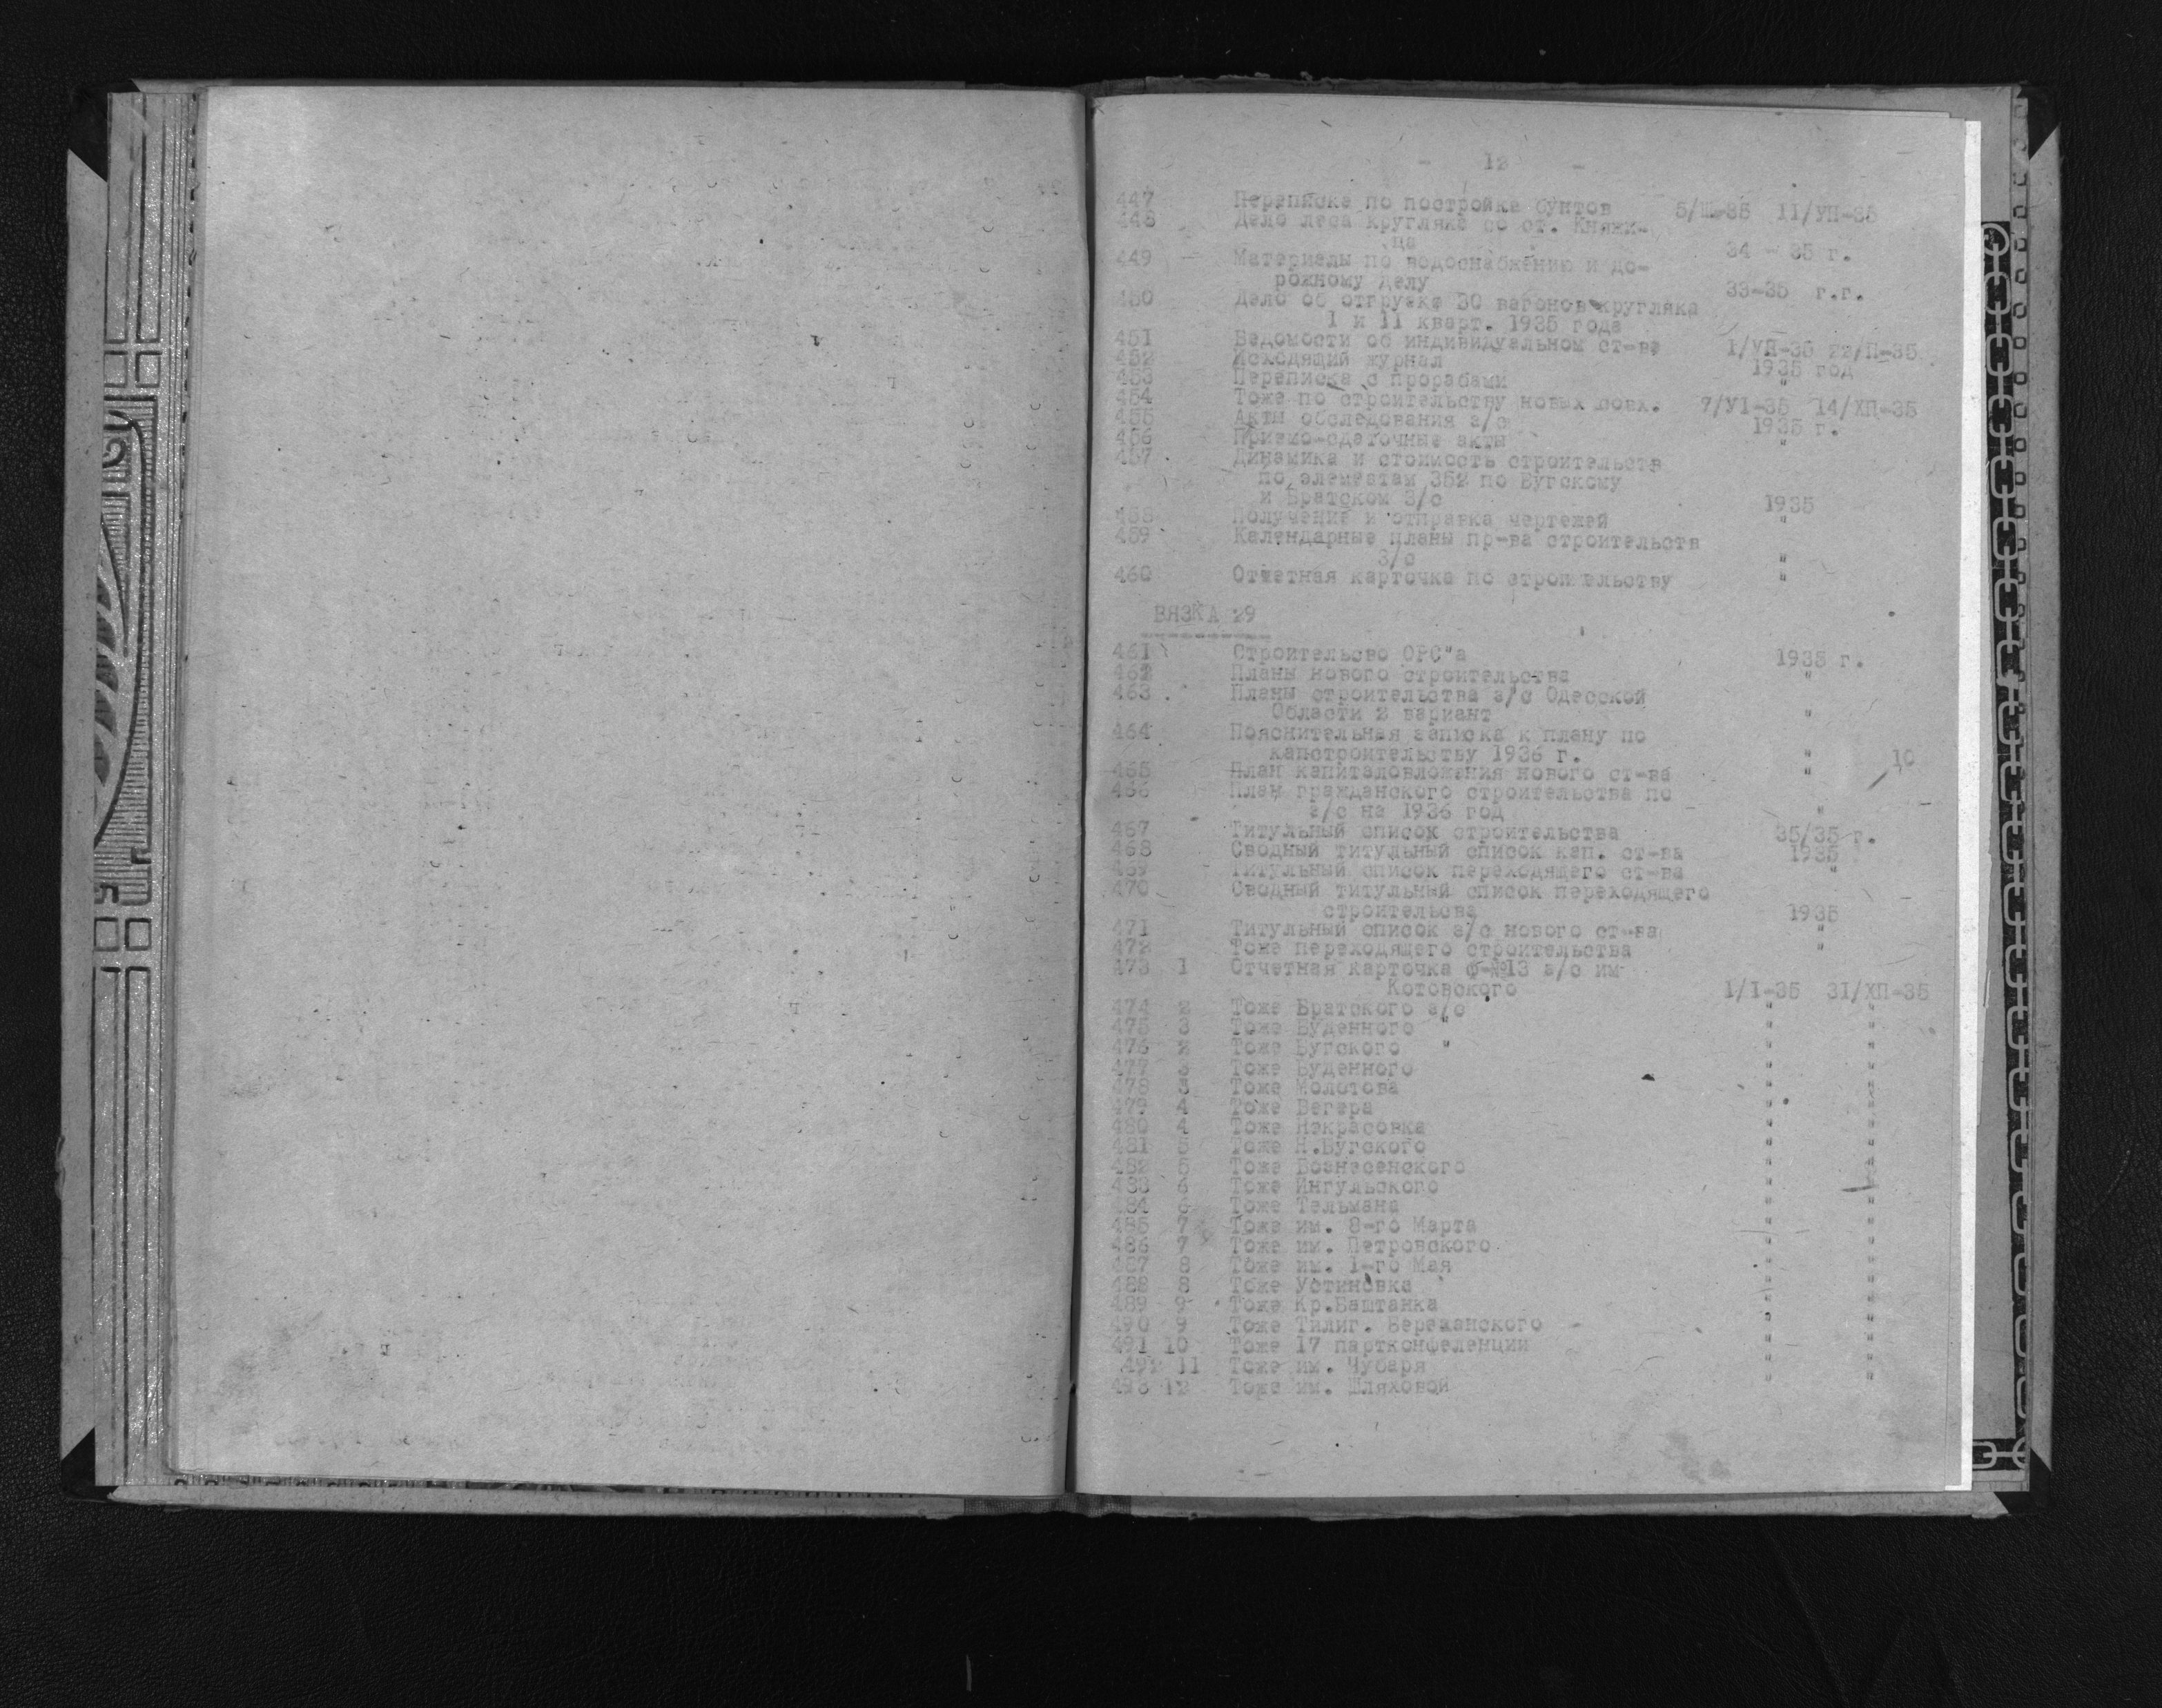 - 12 -
447 Переписка по постройке бунтов 5/Ш-35 11/УП-35
448 Дело леса кругляка со ст. Княжи-
ца 34 - 35 г.
449 Материалы по водоснабжению и до-
рожному делу 33-35 г.г.
450 Дело об отгрузке 30 вагонов кругляка
1 и 11 кварт. 1935 года
451 Ведомости об индивидуальном ст-ве 1/УП-35 22/П-35
452 Исходящий журнал 1935 год
453 Переписка с прорабами "
454 Тоже по строительству новых 7/У1-35 14/ХП-35
455 Акты обследования з/с 1935 г.
456 Приемо-сдаточные акты "
457 Динамика и стоимость строительств
по элементам 352 по Бугскому
и Братском З/с 1935
458 Получение и отправка чертежей "
459 Календарные планы пр-ва строительств
З/с "
460 Отчетная карточка по строительству "
ВЯЗКА 29
461 Строительсво ОРС"а 1935 г.
462 Планы нового строительства "
463 Планы строительства з/с Одесской
Области 2 вариант "
464 Пояснительная записка к плану по
капстроительству 1936 г. "
465 План капиталовложения нового ст-ва " 10
466 План гражданского строительства по
з/с на 1936 год "
467 Титульный список строительства 35/35 г.
468 Сводный титульный список кап. ст-ва 1935
469 Титульный список переходящего ст-ва "
470 Сводный титульный список переходящего
строительсва 1935
471 Титульный список з/с нового ст-ва "
472 Тоже переходящего строительства "
473 1 Отчетная карточка ф-№13 з/с им
Котовского 1/I-35 31/ХП-35
474 2 Тоже Братского з/с " "
475 3 Тоже Буденного " " "
476 2 Тоже Бугского " " "
477 3 Тоже Буденного " "
478 3 Тоже Молотова " "
479 4 Тоже Вегера " "
480 4 Тоже Некрасовка " "
481 5 Тоже Н.Бугского " "
482 5 Тоже Вознесенского " "
483 6 Тоже Ингульского " "
484 6 Тоже Тельмана " "
485 7 Тоже им. 8-го Марта " "
486 7 Тоже им. Петровского " "
487 8 Тоже им. 1-го Мая " "
488 8 Тоже Устиновка " "
489 9 Тоже Кр.Баштанка " "
490 9 Тоже Тилиг. Березанского " "
491 10 Тоже 17 партконфеленции " "
492 11 Тоже им. Чубаря " "
493 12 Тоже им. Шляховой " "